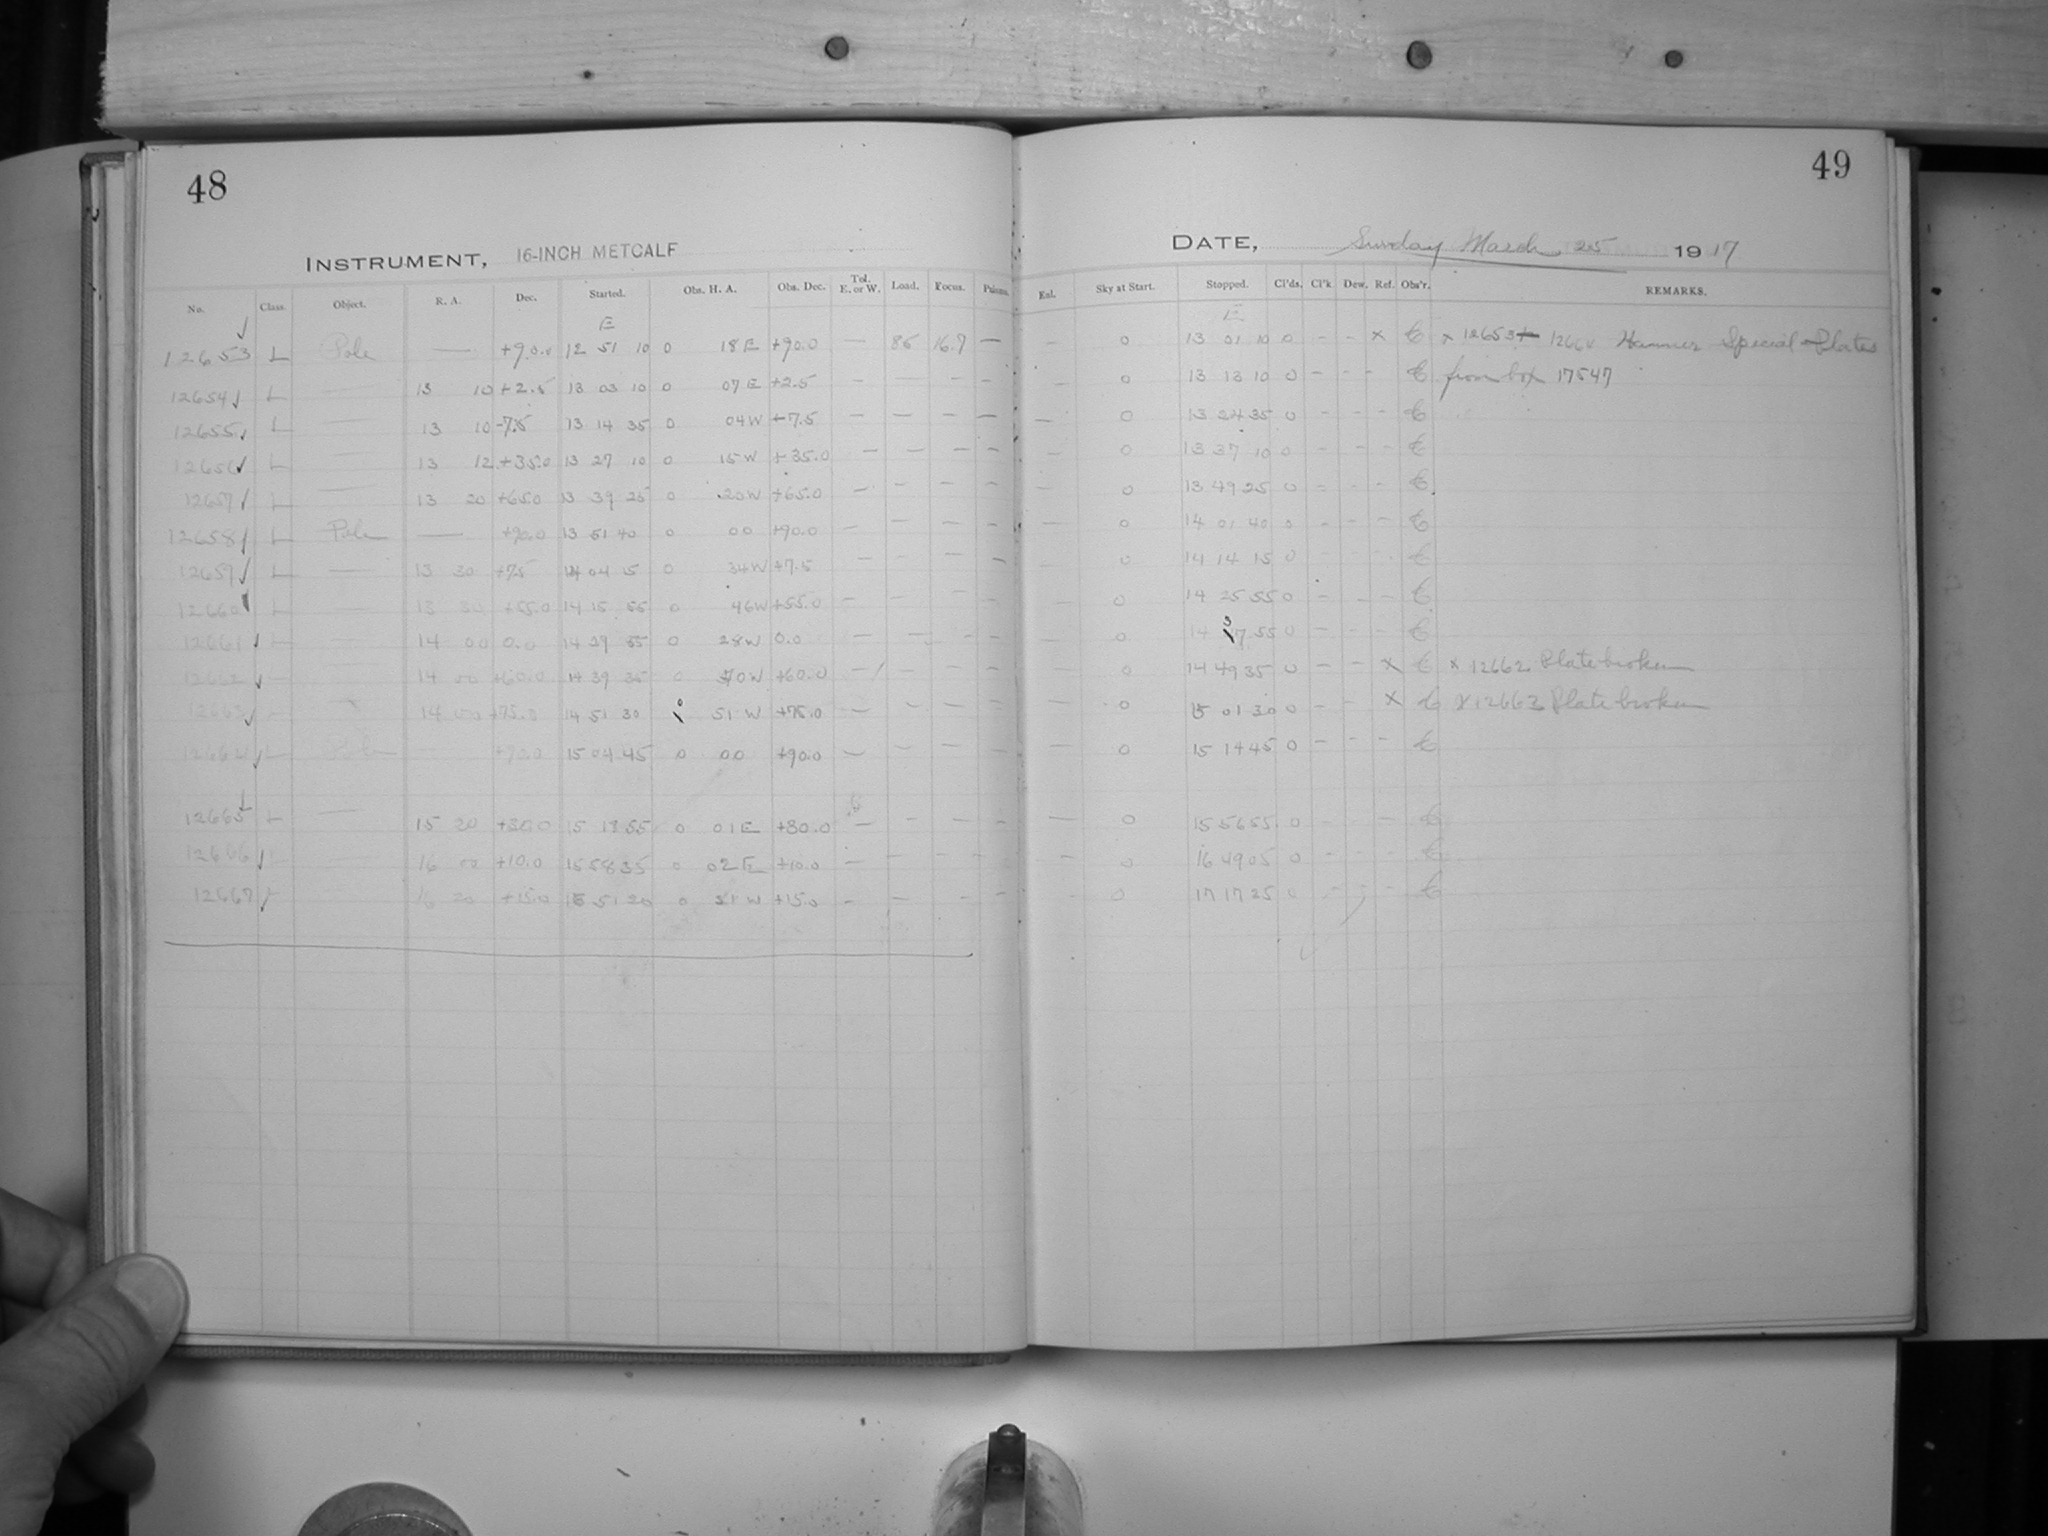 48
49
INSTRUMENT, 16-INCH METCALF
DATE, Sunday March 25 1917
No. Class. Object. R. A. Dec. Started. Obs. H. A. Obs. Dec. Tel. E. or W. Load. Focus. Enl. Sky at Start. Stopped. Cl'ds. Cl'k Dew. Ref. Obs'r. REMARKS.
E E
12653 L Pole — +90.0 12 51 10 0 18 E +90.0 — 86 16.9 — — 0 13 01 10 0 - - x x 12653 1266 Hammer Special Plates
12654 L — 13 10 +2.5 13 03 10 0 07 E +2.5 — — — — — 0 13 13 10 0 - - - from box 17547
12655 L — 13 10 -7.5 13 14 35 0 04 W 7.5 — — — — — 0 13 24 35 0 - - -
12656 L — 13 12 +35.0 13 27 10 0 15 W +35.0 — — — — — 0 13 37 10 0 - - -
12657 L — 13 20 +65.0 13 39 25 0 20 W +65.0 — — — — — 0 13 49 25 0 - - -
12658 L Pole — +90.0 13 51 40 0 00 +90.0 — — — — — 0 14 01 40 0 - - -
12659 L — 13 30 +7.5 14 04 15 0 34 W +7.5 — — — — 0 14 14 15 0
12660 L — 13 30 +55.0 14 15 55 0 46 W +55.0 — — — — — 0 14 25 55 0 - - -
12661 L — 14 00 0.0 14 29 55 0 28 W 0.0 — — - - — 0 14 37 55 0 - - -
12662 — 14 00 +60.0 14 39 35 0 W +60.0 — — — — — 0 14 49 35 0 - - x x 12662 Plate broken
12663 — 14 00 +75.0 14 51 30 0 51 W +75.0 — — — — — 0 15 01 30 0 - - x x 12663 Plate broken
12664 L Pole — +90.0 15 04 45 0 00 +90.0 — — — — — 0 15 14 45 0 - - -
12665 L — 15 20 +30.0 15 18 55 0 01 E +30.0 — - - - — 0 15 56 55 0 - - -
12666 — 16 00 +10.0 15 58 35 0 02 E +10.0 — - - - — 0 16 49 05 0 - - -
12667 16 20 +15.0 16 51 20 0 31 W +15.0 - - - - - 0 17 17 25 0 - - -